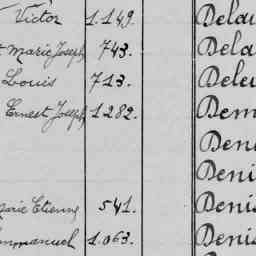 Victor 1.149. Delau
Marie Joseph 743. Dela
Louis 713. Deleu
Ernest Joseph 1282. Dem
Deni
Deni
Marie Etienne 541. Denis
Emmanuel 1.063. Denis